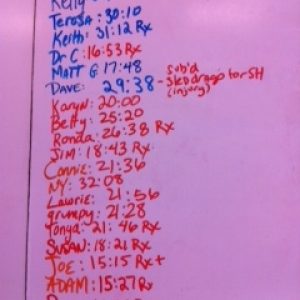 Kelly
Teresa: 30:10
Keith: 31:12 Rx
Dr C: 16:53 Rx
MATT G 17:48
DAVE: 29:38 - sub'd sled drags for SH (injury)
Karyn: 20:00
Betty: 25:20
Ronda: 26:38 Rx
JIM: 18:43 Rx
Connie: 21:36
NY: 32:08
Lawrie: 21:56
grumpy: 21:28
Tonya: 21:46 Rx
SUSAN: 18:21 Rx
JOE: 15:15 Rx+
ADAM: 15:27 Rx